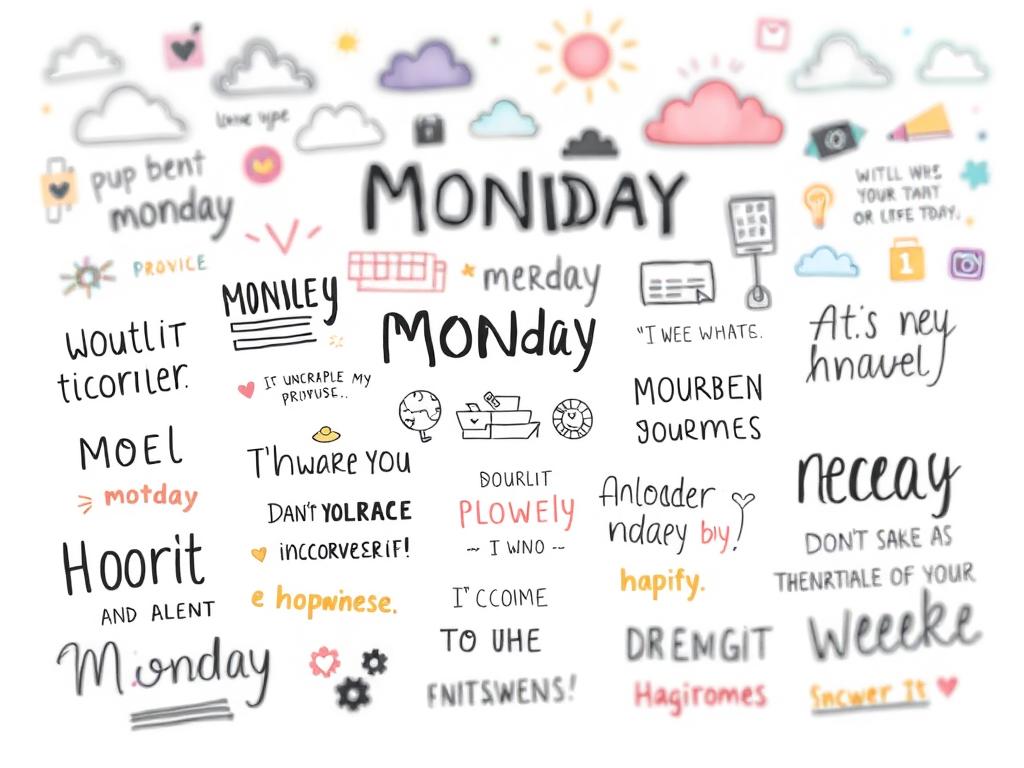 pup bent
monday
MONIDAY
WITLL WHS
YOUR TART
OR LIFE TDAY.
PROVICE
merday
1
MONILEY
MONday
"I WEE WHATS.
At.s ney
hnavel
WOUTLIT
TICORILER.
IT UNCRAPLE MY
PROVUSE..
MOURBEN
gOURMES
MOEL
motday
T'hWARE YOU
DOURLIT
PLOWELY
~ I WNO --
Anloader
ndaey biy!
neceay
DAN'T YOLRACE
INCCORVESRIF!
DON'T SAKE AS
THENRTIALE OF YOUR
Weeeke
Hoorit
AND ALENT
e hopwinese.
I" CCOIME
TO UHE
FNITSWENS!
hapify.
DREMGIT
Hagiromes
Sncwer It
Monday